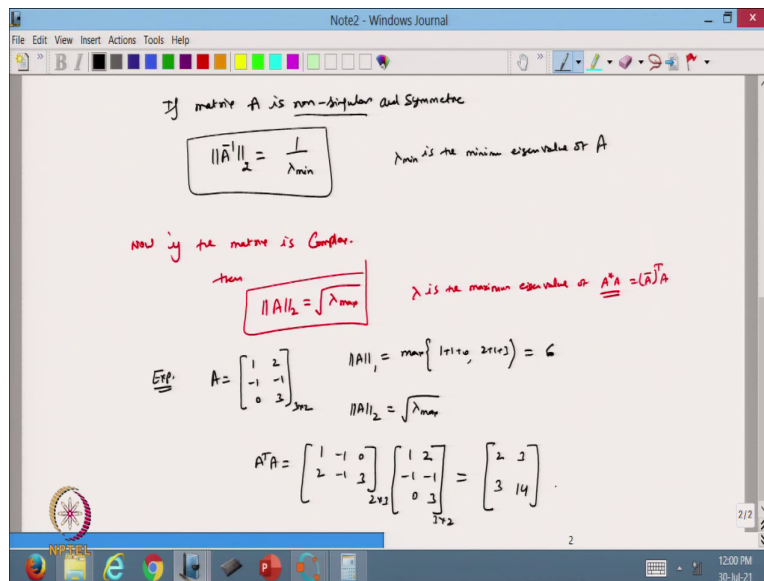 Note2 - Windows Journal
File Edit View Insert Actions Tools Help
B I
If matrix A is non-singular and Symmetric
||A⁻¹||₂ = 1/λmin
λmin is the minimum eigenvalue of A
Now if the matrix is Complex.
then
||A||₂ = √λmax
λ is the maximum eigenvalue of A*A = (Ā)ᵀA
Exp. A = [1 2; -1 -1; 0 3]3×2
||A||₁ = max{1+1+0, 2+1+3} = 6
||A||₂ = √λmax
AᵀA = [1 -1 0; 2 -1 3]2×3 [1 2; -1 -1; 0 3]3×2 = [2 3; 3 14].
2/2
2
NPTEL
12:00 PM
30-Jul-21